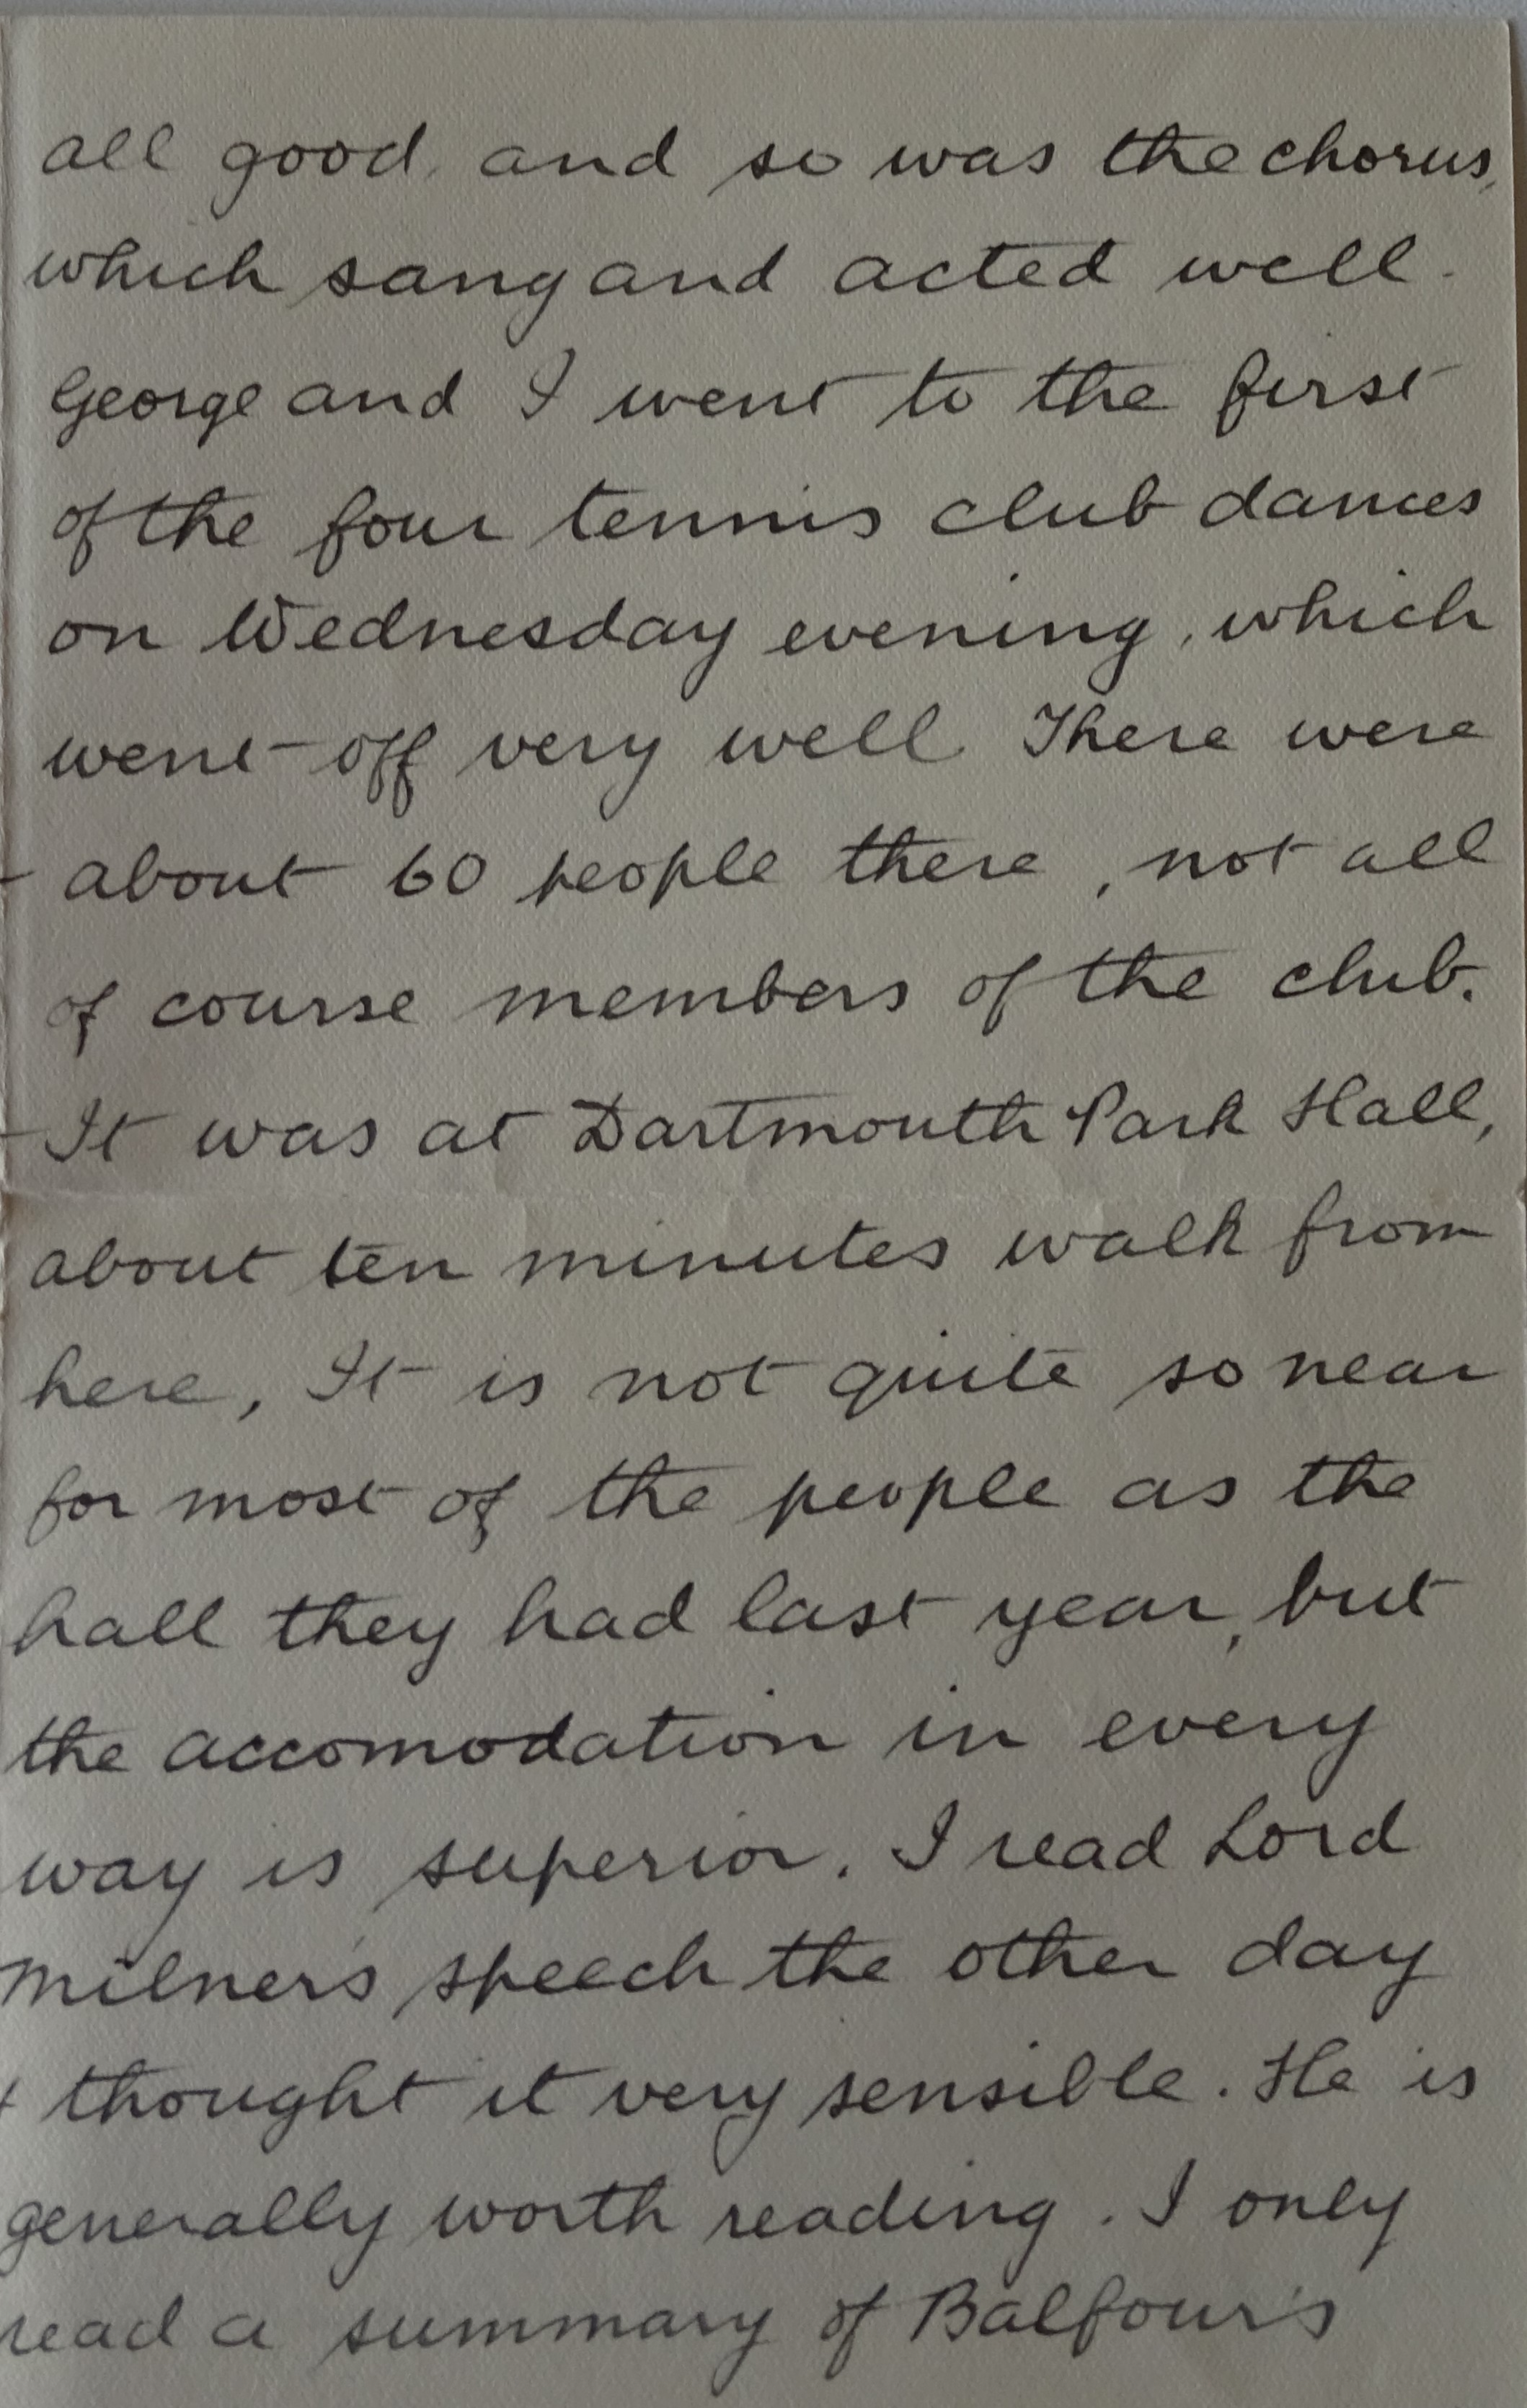 all good, and so was the chorus,
which sang and acted well.
George and I went to the first
of the four tennis club dances
on Wednesday evening, which
went off very well. There were
about 60 people there, not all
of course members of the club.
It was at Dartmouth Park Hall,
about ten minutes walk from
here, It is not quite so near
for most of the people as the
hall they had last year, but
the accomodation in every
way is superior. I read Lord
Milner's speech the other day
& thought it very sensible. He is
generally worth reading. I only
read a summary of Balfour's